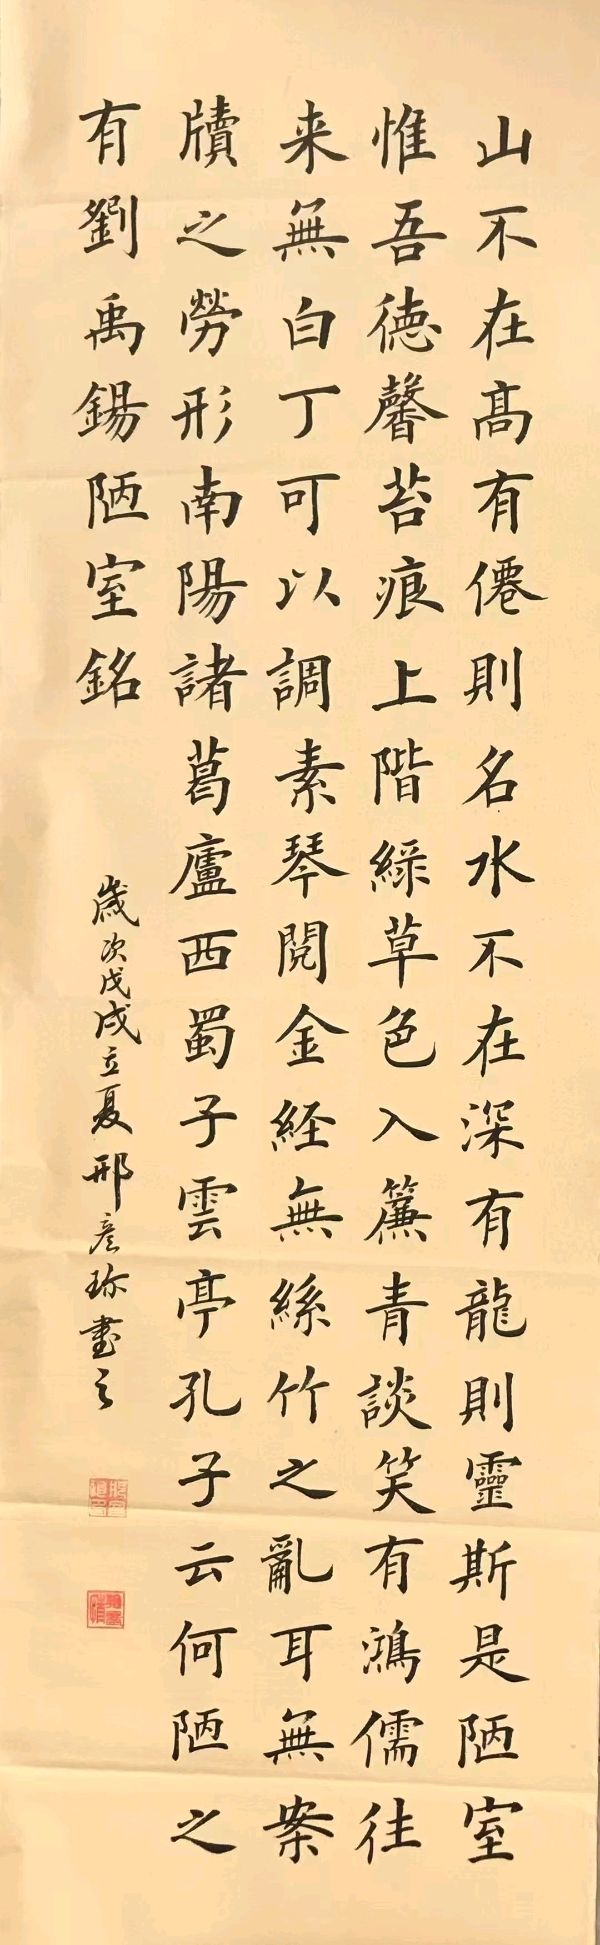 山不在髙有僊則名水不在深有龍則靈斯是陋室
惟吾徳馨苔痕上階綠草色入簾青談笑有鴻儒往
来無白丁可以調素琴閱金経無絲竹之亂耳無案
牘之勞形南陽諸葛廬西蜀子雲亭孔子云何陋之
有劉禹錫陋室銘
歲次戊戌立夏邢彦珍書之